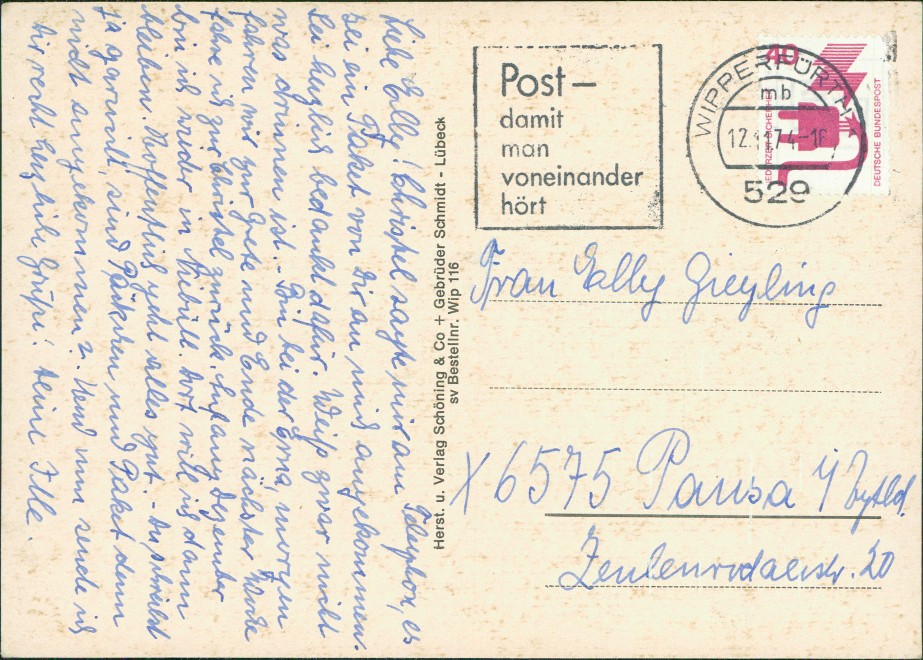 Liebe Elly! Christel sagte mir am Telephon, es
sei ein Paket von Dir an mich angekommen.
Sei herzlich bedankt dafür. Weiß zwar nicht
was drinnen ist. - Bin bei der Erna, morgen
fahren wir zur Grete und Ende nächster Woche
fahre ich zur Christel zurück. Anfang Dezember
bin ich wieder in Niebüll. Dort will ich dann
bleiben. Hoffentlich geht alles gut. - Du schickst
ja zuviel, sind Päckchen und Paket denn
nicht angekommen? Und nun sende ich
Dir recht herzliche Grüße! Deine Ille.
Herst. u. Verlag Schöning & Co + Gebrüder Schmidt - Lübeck
sv Bestellnr. Wip 116
Post –
damit
man
voneinander
hört
WIPPERFÜRTH
mb
12.11.74-16
529
40
JEDERZEIT SICHERHEIT
DEUTSCHE BUNDESPOST
Frau Elly Ziegling
X 6575 Pausa / Vogtld.
Zeulenrodaerstr. 20